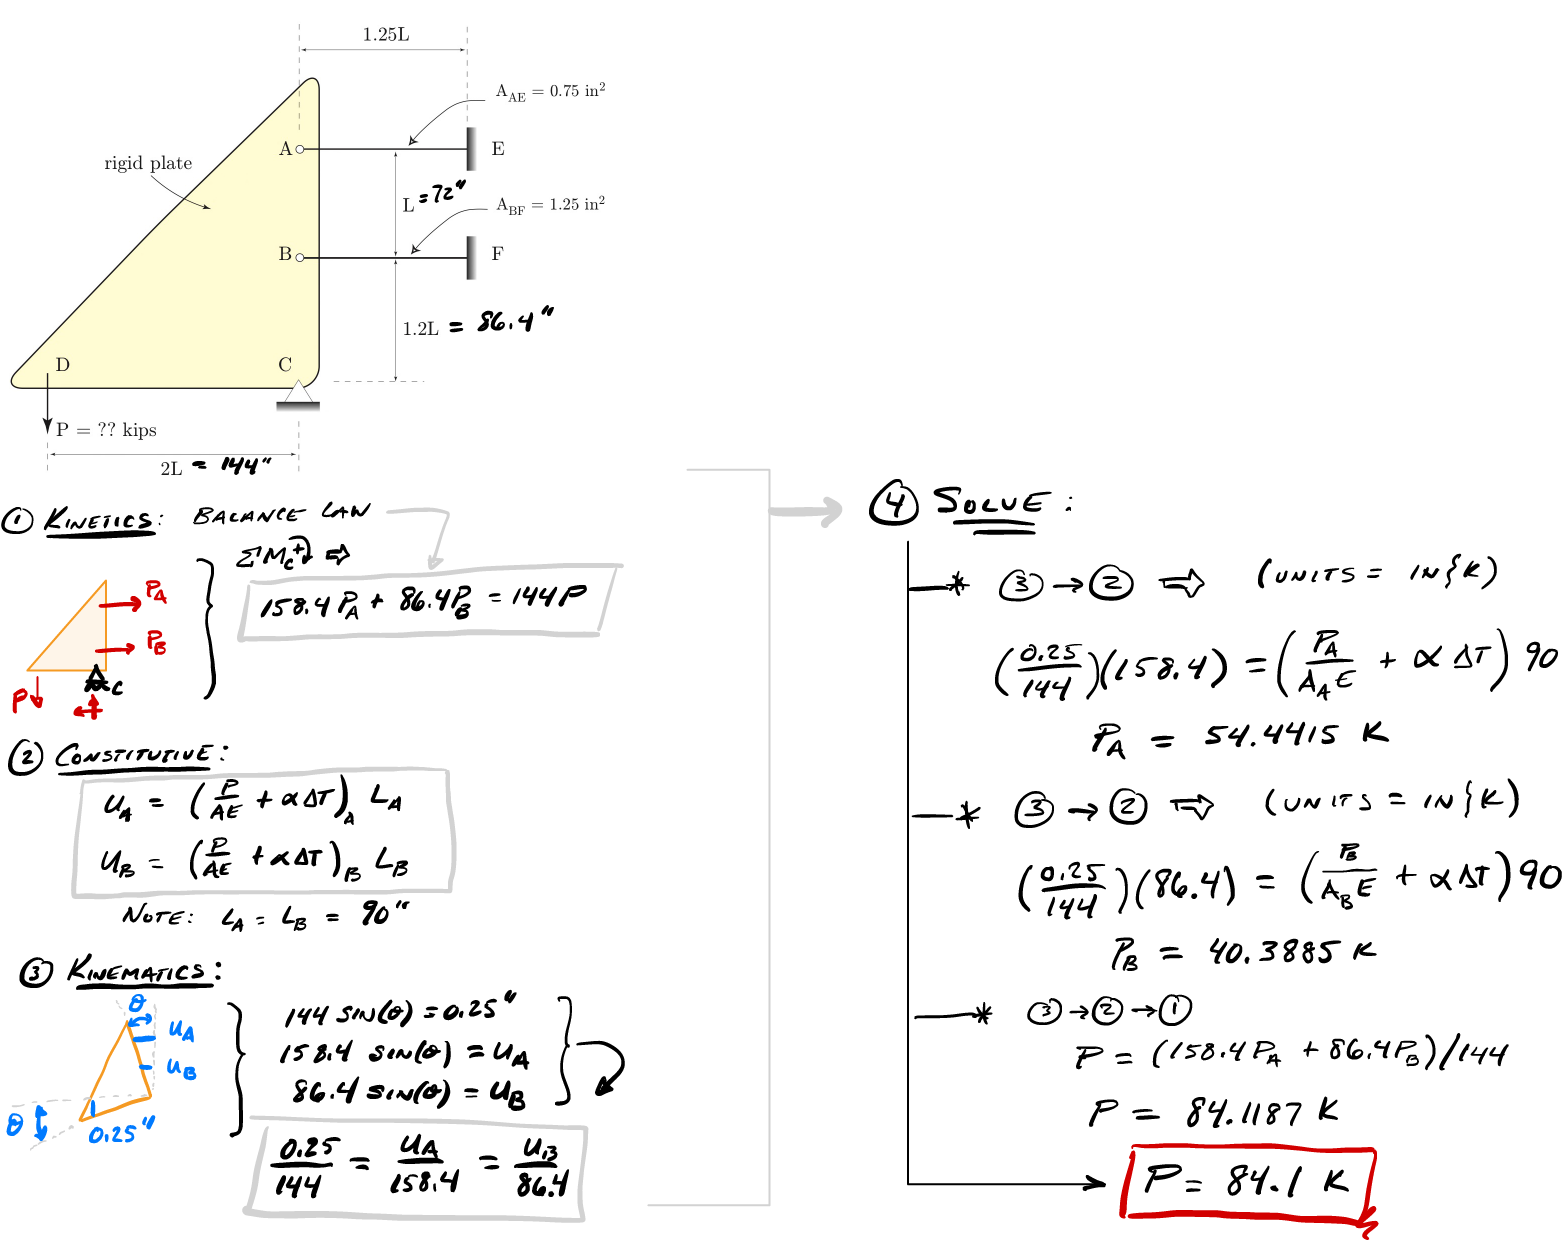 1.25L
A_AE = 0.75 in²
A
E
rigid plate
L = 72"
A_BF = 1.25 in²
B
F
1.2L = 86.4"
D
C
P = ?? kips
2L = 144"
① KINETICS: BALANCE LAW
ΣM_C + ⇨
P_A
158.4 P_A + 86.4 P_B = 144 P
P_B
C
P
② CONSTITUTIVE:
U_A = (P/AE + αΔT)_A L_A
U_B = (P/AE + αΔT)_B L_B
NOTE: L_A = L_B = 90"
③ KINEMATICS:
θ
144 SIN(θ) = 0.25"
U_A
158.4 SIN(θ) = U_A
U_B
86.4 SIN(θ) = U_B
θ
0.25"
0.25/144 = U_A/158.4 = U_B/86.4
④ SOLVE:
* ③ → ② ⇨ (UNITS = IN & K)
(0.25/144)(158.4) = (P_A/A_A E + αΔT) 90
P_A = 54.4415 K
* ③ → ② ⇨ (UNITS = IN & K)
(0.25/144)(86.4) = (P_B/A_B E + αΔT) 90
P_B = 40.3885 K
* ③ → ② → ①
P = (158.4 P_A + 86.4 P_B)/144
P = 84.1187 K
P = 84.1 K